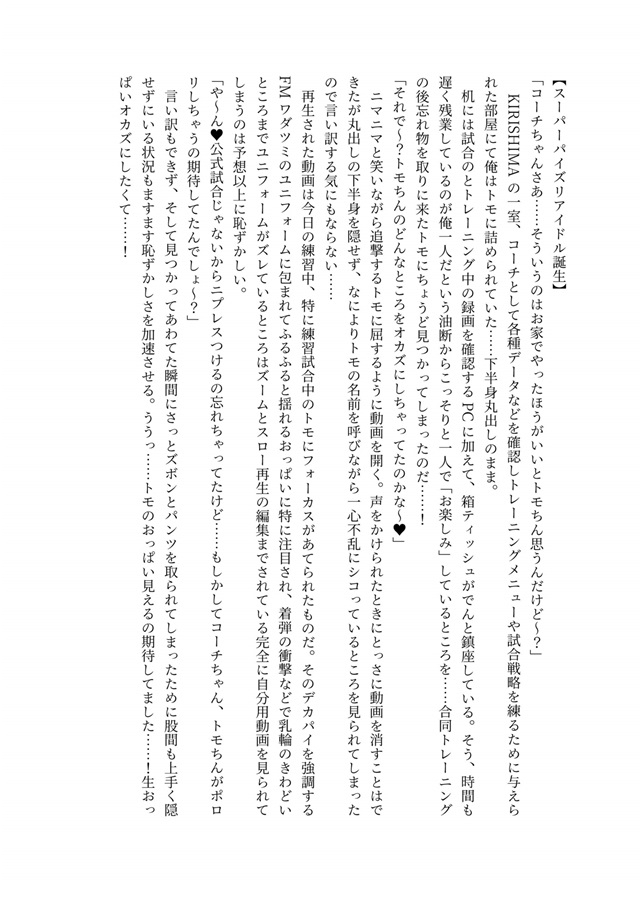 【スーパーパイズリアイドル誕生】
「コーチちゃんさあ……そういうのはお家でやったほうがいいとトモちん思うんだけど～？」
KIRISHIMA の一室、コーチとして各種データなどを確認しトレーニングメニューや試合戦略を練るために与えら
れた部屋にて俺はトモに詰められていた……下半身丸出しのまま。
机には試合のとトレーニング中の録画を確認する PC に加えて、箱ティッシュがでんと鎮座している。そう、時間も
遅く残業しているのが俺一人だという油断からこっそりと一人で「お楽しみ」しているところを……合同トレーニング
の後忘れ物を取りに来たトモにちょうど見つかってしまったのだ……！
「それで～？トモちんのどんなところをオカズにしちゃってたのかな～♥」
ニマニマと笑いながら追撃するトモに屈するように動画を開く。声をかけられたときにとっさに動画を消すことはで
きたが丸出しの下半身を隠せず、なによりトモの名前を呼びながら一心不乱にシコっているところを見られてしまった
ので言い訳する気にもならない……
再生された動画は今日の練習中、特に練習試合中のトモにフォーカスがあてられたものだ。そのデカパイを強調する
FM ワダツミのユニフォームに包まれてふるふると揺れるおっぱいに特に注目され、着弾の衝撃などで乳輪のきわどい
ところまでユニフォームがズレているところはズームとスロー再生の編集までされている完全に自分用動画を見られて
しまうのは予想以上に恥ずかしい。
「や～ん♥公式試合じゃないからニプレスつけるの忘れちゃってたけど……もしかしてコーチちゃん、トモちんがポロ
リしちゃうの期待してたんでしょ～？」
言い訳もできず、そして見つかってあわてた瞬間にさっとズボンとパンツを取られてしまったために股間も上手く隠
せずにいる状況もますます恥ずかしさを加速させる。ううっ……トモのおっぱい見えるの期待してました……！生おっ
ぱいオカズにしたくて……！